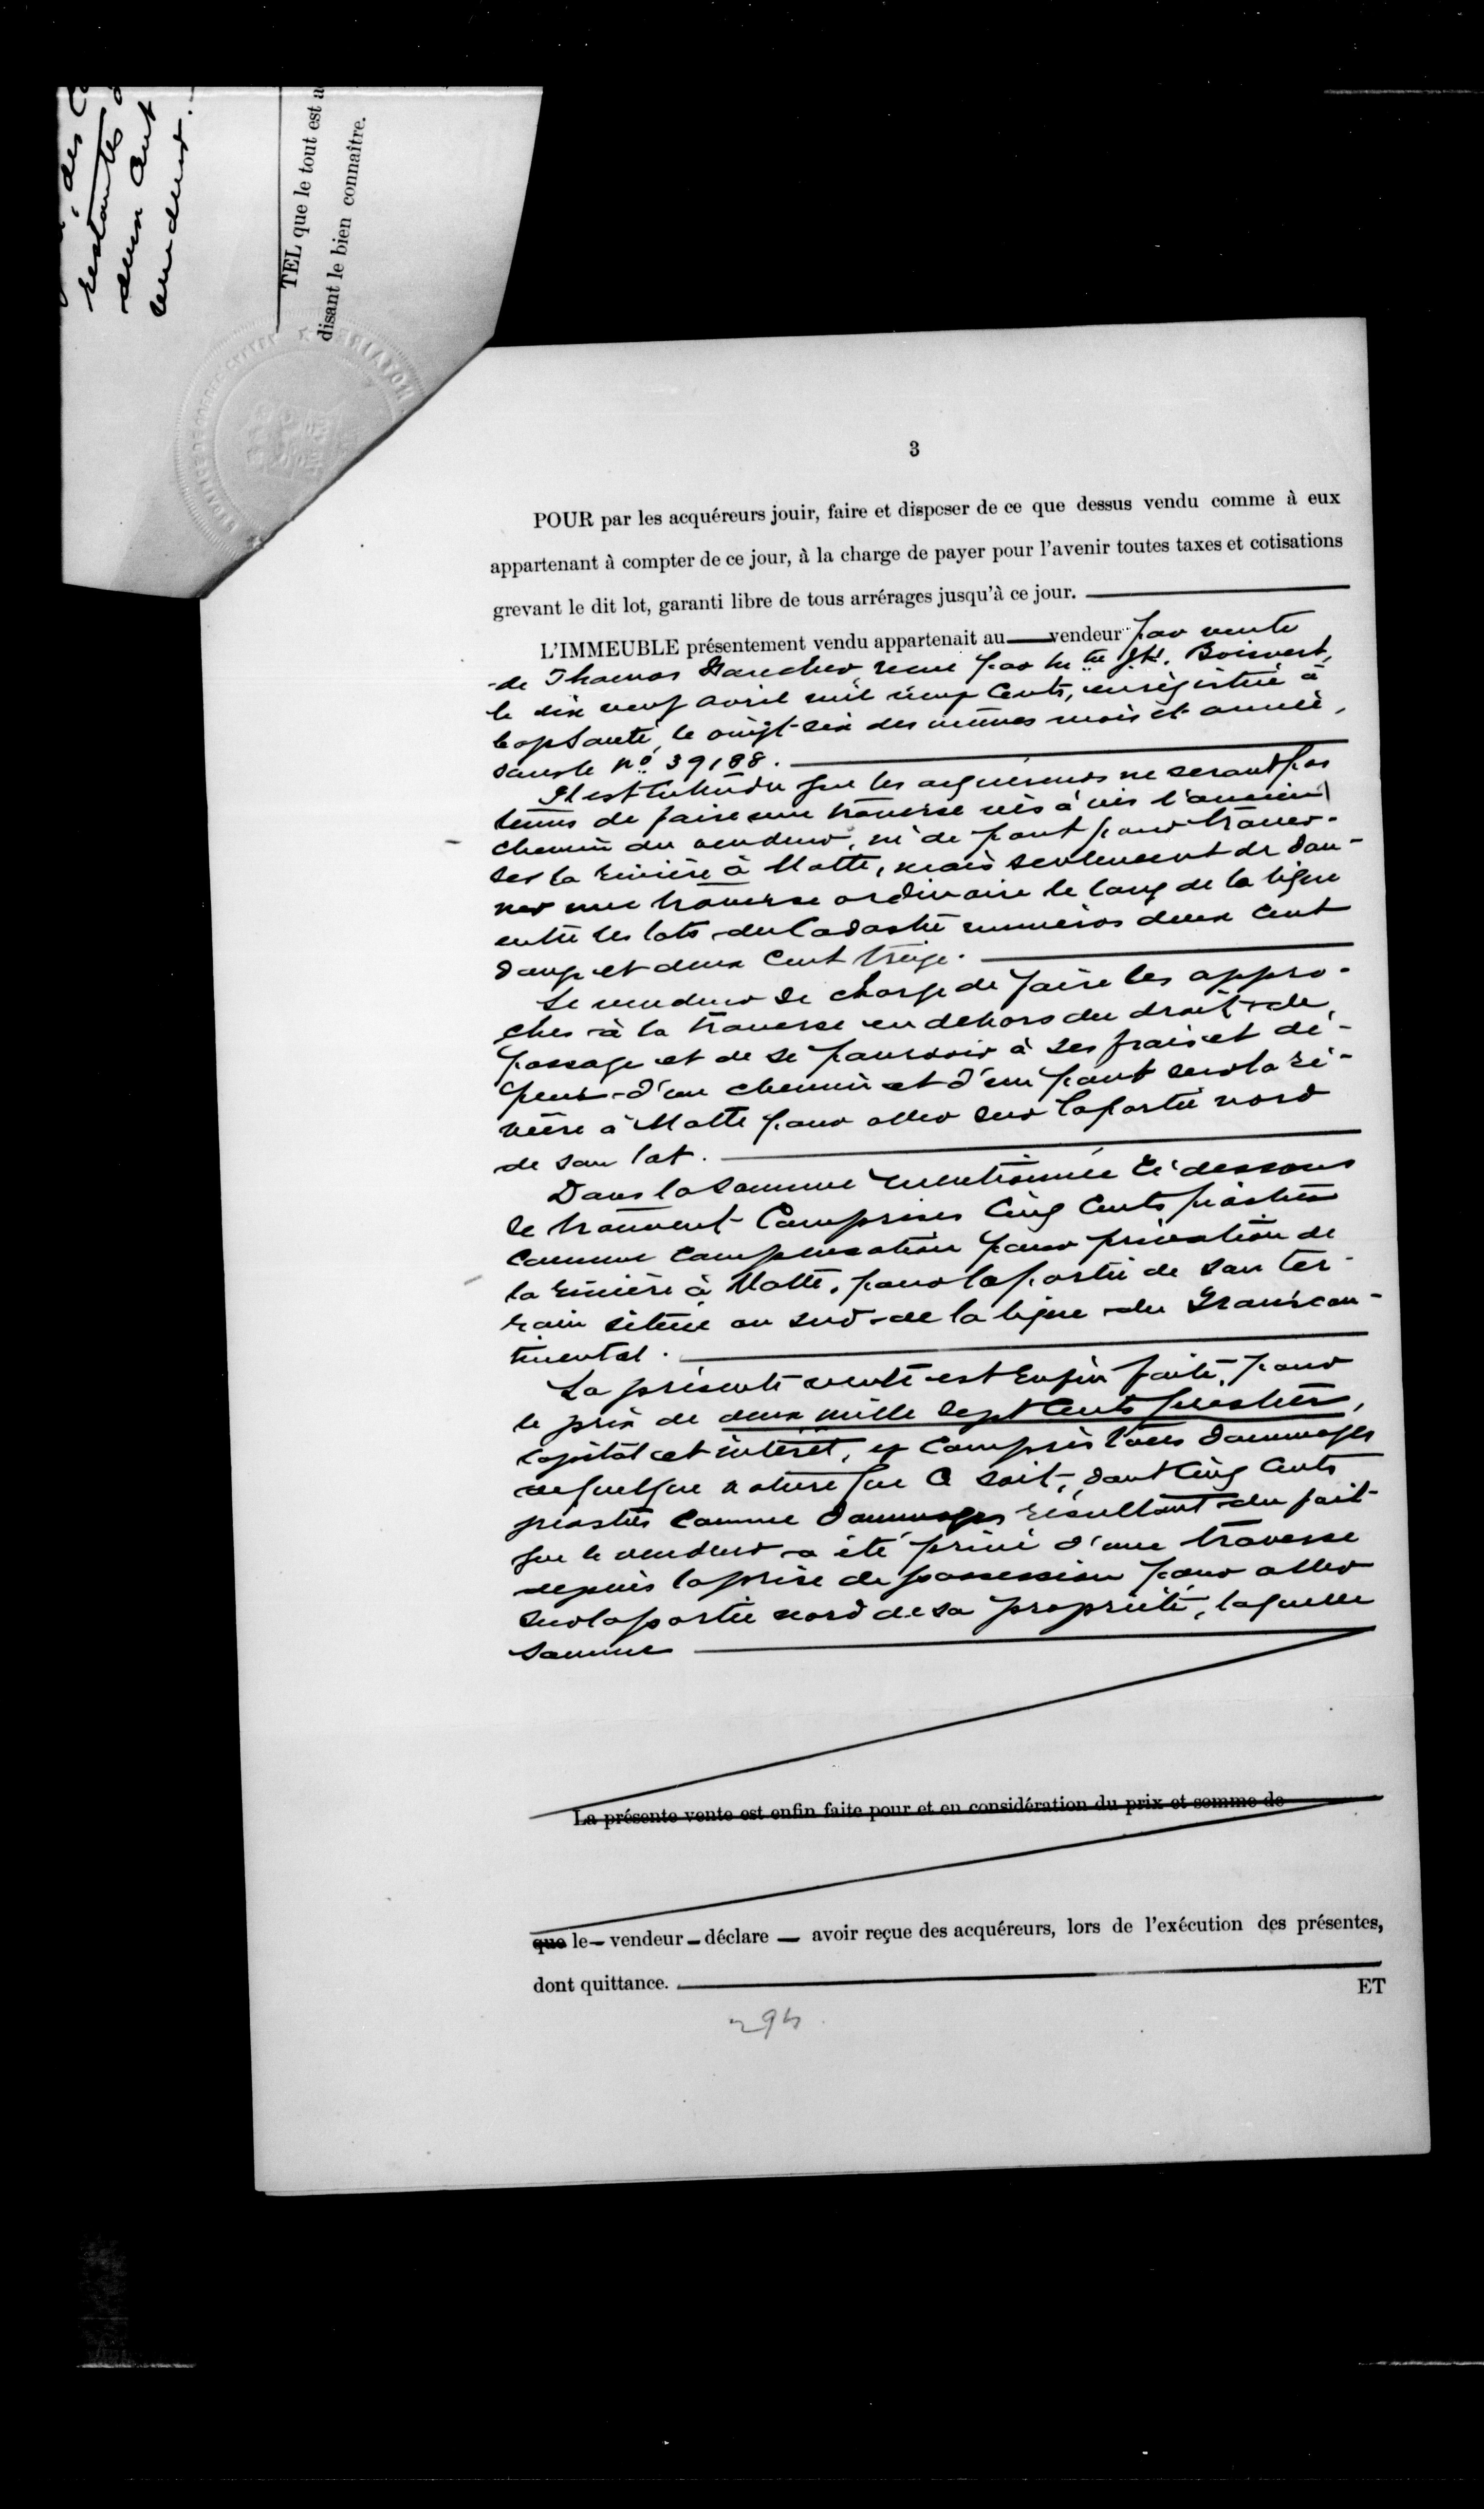 , des
restantes
deux cent
vendeur.
TEL que le tout est a
disant le bien connaître.
3
POUR par les acquéreurs jouir, faire et disposer de ce que dessus vendu comme à eux
appartenant à compter de ce jour, à la charge de payer pour l'avenir toutes taxes et cotisations
grevant le dit lot, garanti libre de tous arrérages jusqu'à ce jour.
L'IMMEUBLE présentement vendu appartenait au — vendeur par vente
de Thomas Faucher, reçue par Mtre Jh. Boisvert,
le dix neuf avril mil neuf cents, enrégistrée à
Cap Santé, le vingt-six des mêmes mois et année,
sous le No. 39188.
Il est entendu que les acquéreurs ne seront pas
tenus de faire une traverse vis à vis l'ancien
chemin du vendeur, ni de pont pour traver-
ser la rivière à Matte, mais seulement de don-
ner une traverse ordinaire le long de la ligne
entre les lots du Cadastre numéros deux cent
douze et deux cent treize.
Le vendeur se charge de faire les appro-
ches à la traverse en dehors du droit de
passage et de se pourvoir à ses frais et dé-
pens d'un chemin et d'un pont sur la ri-
vière à Matte pour aller sur la partie nord
de son lot.
Dans la somme mentionnée ci dessous
se trouvent comprises cinq cents piastres
comme compensation pour privation de
la rivière à Matte, pour la partie de son ter-
rain située au sud de la ligne du Transcon-
tinental.
La présente vente est enfin faite, pour
le prix de deux mille sept cents piastres,
capital et intérêt, y compris tous dommages
de quelque nature que ce soit, dont cinq cents
piastres comme dommages résultant du fait
que le vendeur a été privé d'une traverse
depuis la prise de possession pour aller
sur la partie nord de sa propriété, laquelle
somme
La présente vente est enfin faite pour et en considération du prix et somme de
que le — vendeur — déclare — avoir reçue des acquéreurs, lors de l'exécution des présentes,
dont quittance.
ET